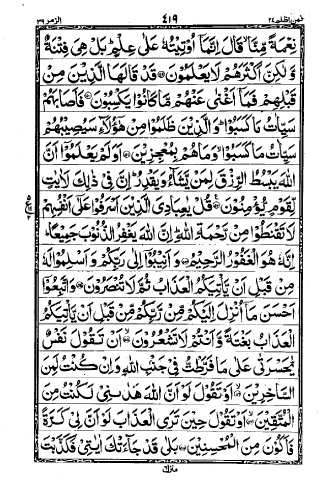 فمن اظلم ٢٤ ٤١٩ الزمر ٣٩
نِعْمَةً مِّنَّا قَالَ اِنَّمَاۤ اُوْتِيْتُهٗ عَلٰى عِلْمٍ بَلْ هِىَ فِتْنَةٌ
وَّلٰكِنَّ اَكْثَرَهُمْ لَا يَعْلَمُوْنَ۞ قَدْ قَالَهَا الَّذِيْنَ مِنْ
قَبْلِهِمْ فَمَاۤ اَغْنٰى عَنْهُمْ مَّا كَانُوْا يَكْسِبُوْنَ۞ فَاَصَابَهُمْ
سَيِّاٰتُ مَا كَسَبُوْا وَالَّذِيْنَ ظَلَمُوْا مِنْ هٰۤؤُلَآءِ سَيُصِيْبُهُمْ
سَيِّاٰتُ مَا كَسَبُوْا وَمَا هُمْ بِمُعْجِزِيْنَ۞ اَوَلَمْ يَعْلَمُوْۤا اَنَّ
اللّٰهَ يَبْسُطُ الرِّزْقَ لِمَنْ يَّشَآءُ وَيَقْدِرُ اِنَّ فِىْ ذٰلِكَ لَاٰيٰتٍ
لِّقَوْمٍ يُّؤْمِنُوْنَ۞ قُلْ يٰعِبَادِىَ الَّذِيْنَ اَسْرَفُوْا عَلٰۤى اَنْفُسِهِمْ
لَا تَقْنَطُوْا مِنْ رَّحْمَةِ اللّٰهِ اِنَّ اللّٰهَ يَغْفِرُ الذُّنُوْبَ جَمِيْعًا
اِنَّهٗ هُوَ الْغَفُوْرُ الرَّحِيْمُ۞ وَاَنِيْبُوْۤا اِلٰى رَبِّكُمْ وَاَسْلِمُوْا لَهٗ
مِنْ قَبْلِ اَنْ يَّاْتِيَكُمُ الْعَذَابُ ثُمَّ لَا تُنْصَرُوْنَ۞ وَاتَّبِعُوْۤا
اَحْسَنَ مَاۤ اُنْزِلَ اِلَيْكُمْ مِّنْ رَّبِّكُمْ مِّنْ قَبْلِ اَنْ يَّاْتِيَكُمُ
الْعَذَابُ بَغْتَةً وَّاَنْتُمْ لَا تَشْعُرُوْنَ۞ اَنْ تَقُوْلَ نَفْسٌ
يّٰحَسْرَتٰى عَلٰى مَا فَرَّطْتُّ فِىْ جَنْۢبِ اللّٰهِ وَاِنْ كُنْتُ لَمِنَ
السّٰخِرِيْنَ۞ اَوْ تَقُوْلَ لَوْ اَنَّ اللّٰهَ هَدٰىنِىْ لَكُنْتُ مِنَ
الْمُتَّقِيْنَ۞ اَوْ تَقُوْلَ حِيْنَ تَرَى الْعَذَابَ لَوْ اَنَّ لِىْ كَرَّةً
فَاَكُوْنَ مِنَ الْمُحْسِنِيْنَ۞ بَلٰى قَدْ جَآءَتْكَ اٰيٰتِىْ فَكَذَّبْتَ
منزل